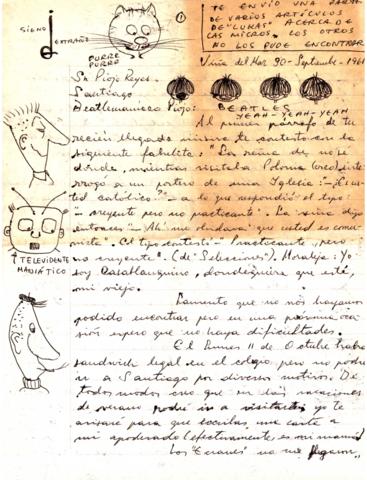 TE ENVÍO UNA PARTE
DE VARIOS ARTÍCULOS
DE "LUKAS" ACERCA DE
LAS MICROS. LOS OTROS
NO LOS PUDE ENCONTRAR
1
SIGNO
EXTRAÑO
PURRR
PURRR
Viña del Mar 30 - Septiembre - 196
Sr. Piojo Reyes.
Santiago
Beatlemaníaco Piojo:
BEATLES
YEAH - YEAH - YEAH
Al primer párrafo de tu
recién llegada misiva te contesto con la
siguiente fabulita: "La reina de no sé
dónde, mientras visitaba Polonia (creo), inte-
rrogó a un portero de una Iglesia: - ¿Es us-
ted católico? " - a lo que respondió el tipo:
- creyente pero no practicante". La reina dijo
entonces - Ah! me olvidaba que usted es comu-
nista". El tipo contestó - Practicante, pero
no creyente". (de Selecciones). Moraleja: Yo
soy Casablanquino, dondequiera que esté,
mi viejo.
TELEVIDENTE
MANIÁTICO
Lamento que no nos hayamos
podido encontrar pero en una próxima oca-
sión espero que no haya dificultades.
El lunes 11 de Octubre habrá
sandwich legal en el colegio, pero no podré
ir a Santiago por diversos motivos. De
todos modos creo que en las vacaciones
de verano podré ir a visitarte, yo te
avisaré para que escribas una carta a
mi apoderado (efectivamente, es mi mamá)
Los "Ecranes" no me llegaron